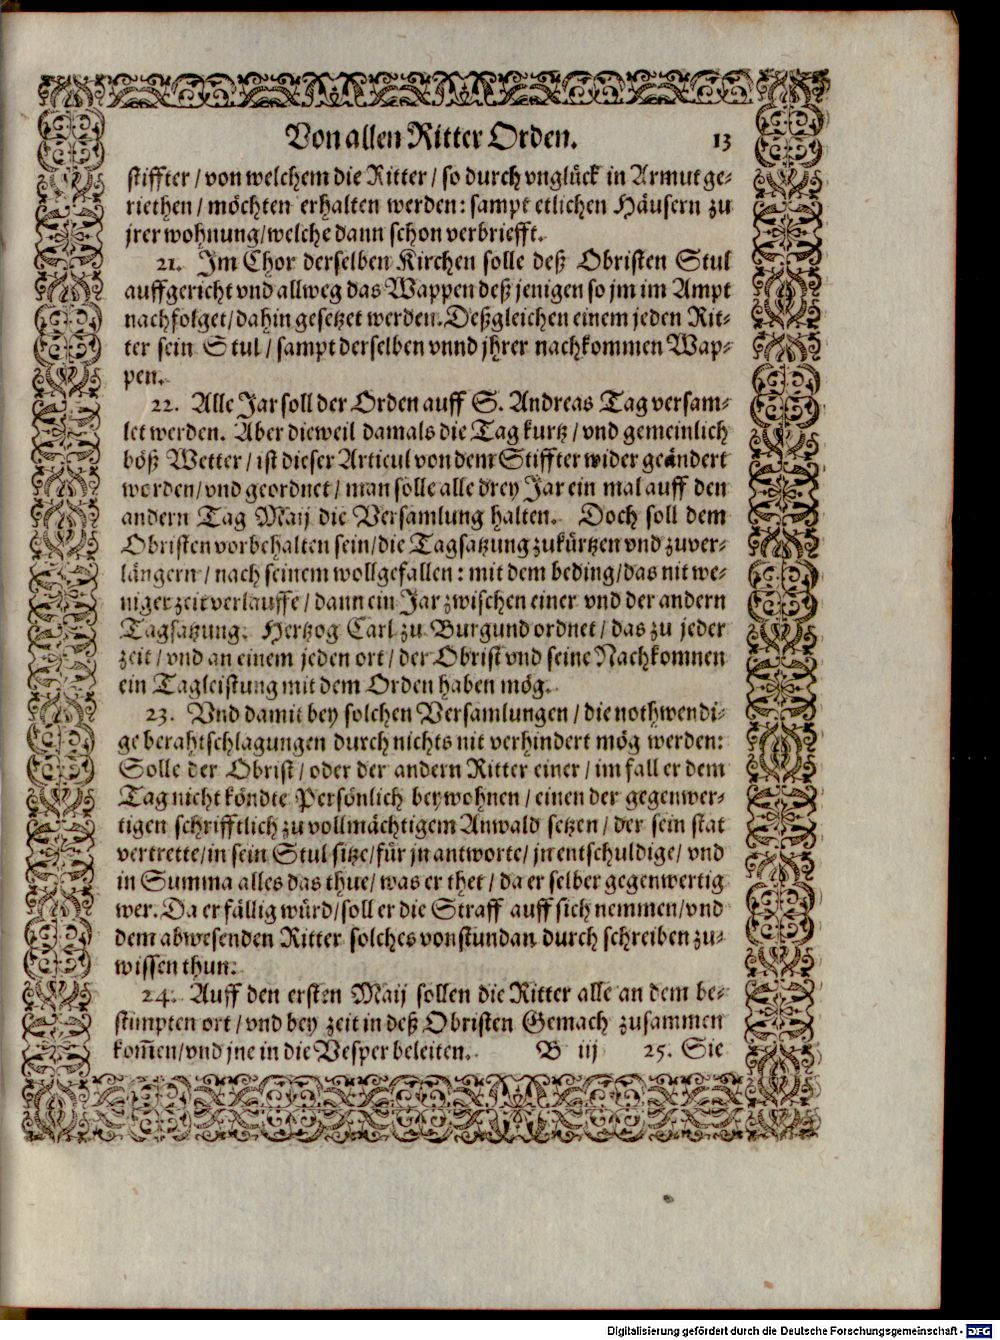 Von allen Ritter Orden. 13
stiffter / von welchem die Ritter / so durch vnglück in Armut ge-
riethen / möchten erhalten werden: sampt etlichen Häusern zu
jrer wohnung/welche dann schon verbriefft.
21. Jm Chor derselben Kirchen solle deß Obristen Stul
auffgericht vnd allweg das Wappen deß jenigen so jm im Ampt
nachfolget/dahin gesetzet werden. Deßgleichen einem jeden Rit-
ter sein Stul / sampt derselben vnnd jhrer nachkommen Wap-
pen.
22. Alle Jar soll der Orden auff S. Andreas Tag versam-
let werden. Aber dieweil damals die Tag kurtz / vnd gemeinlich
böß Wetter / ist dieser Articul von dem Stiffter wider geändert
worden/vnd geordnet / man sölle alle drey Jar ein mal auff den
andern Tag Maij die Versamlung halten. Doch soll dem
Obristen vorbehalten sein/die Tagsatzung zukürtzen vnd zuver-
längern / nach seinem wollgefallen: mit dem beding/das nit we-
niger zeit verlauffe / dann ein Jar zwischen einer vnd der andern
Tagsatzung. Hertzog Carl zu Burgund ordnet / das zu jeder
zeit / vnd an einem jeden ort / der Obrist vnd seine Nachkomnen
ein Tagleistung mit dem Orden haben mög.
23. Vnd damit bey solchen Versamlungen / die nothwendi-
ge berahtschlagungen durch nichts nit verhindert mög werden:
Solle der Obrist / oder der andern Ritter einer / im fall er dem
Tag nicht köndte Persönlich beywohnen / einen der gegenwer-
tigen schrifftlich zu vollmächtigem Anwald setzen / der sein stat
vertrette/in sein Stul sitze/für jn antworte/ jn entschuldige/ vnd
in Summa alles das thue/ was er thet / da er selber gegenwertig
wer. Da er fällig würd/soll er die Straff auff sich nemmen/vnd
dem abwesenden Ritter solches vonstundan durch schreiben zu-
wissen thun.
24. Auff den ersten Maij sollen die Ritter alle an dem be-
stimpten ort / vnd bey zeit in deß Obristen Gemach zusammen
kom̃en/vnd jne in die Vesper beleiten. B iij 25. Sie
Digitalisierung gefördert durch die Deutsche Forschungsgemeinschaft - DFG